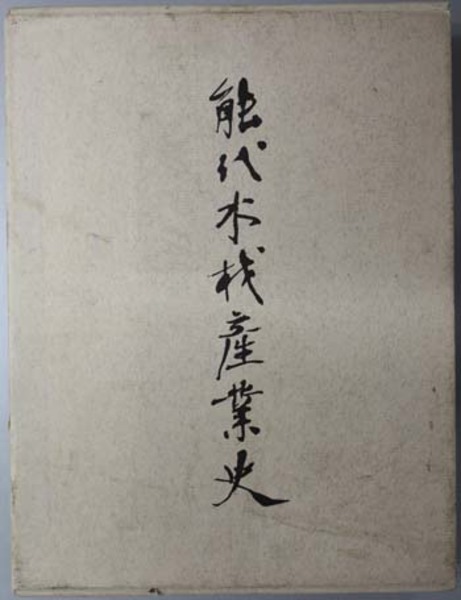 能代木材産業史